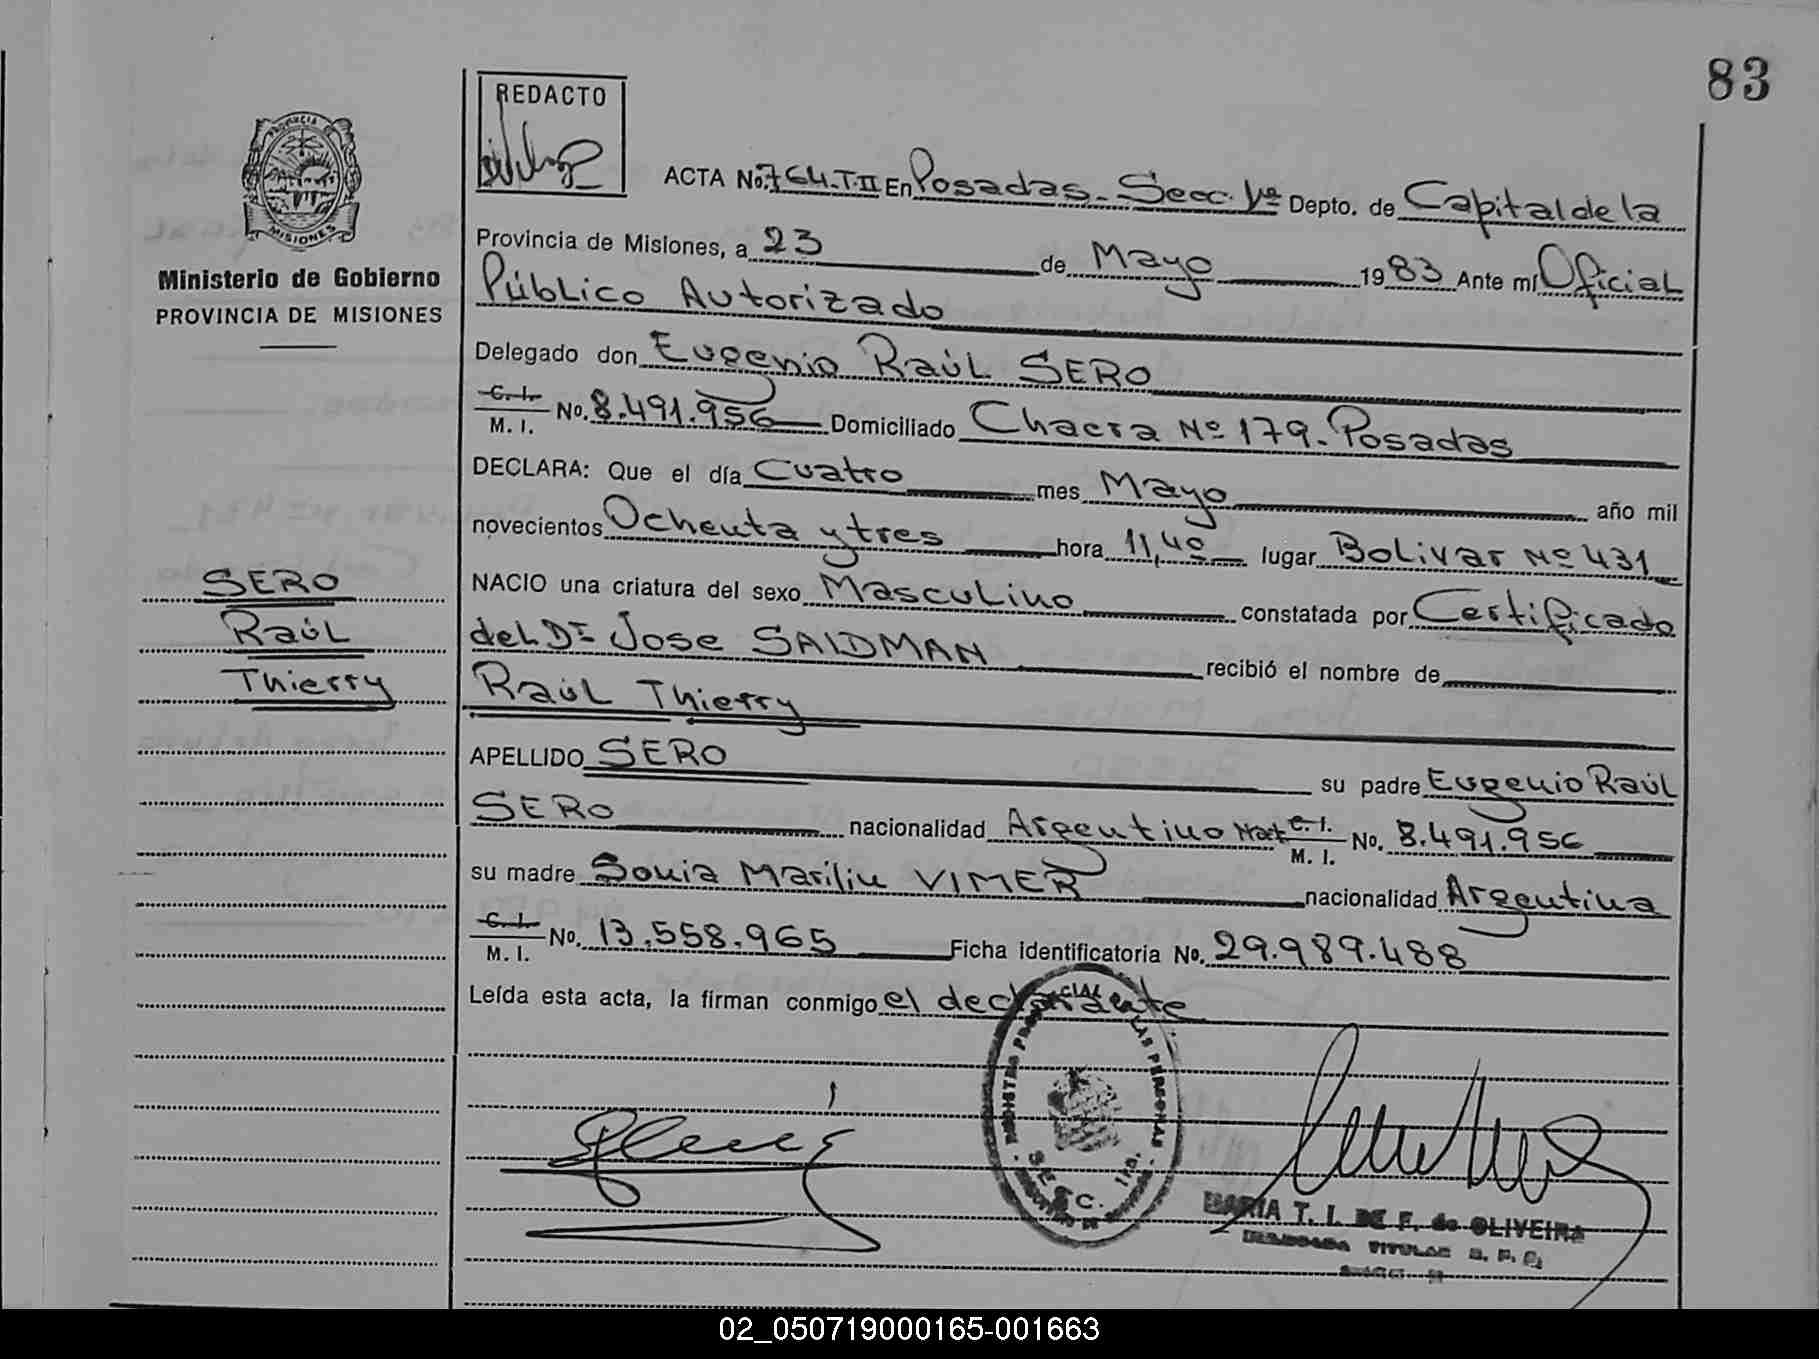 83
REDACTO
ACTA No. 764-T.II En Posadas - Secc. 1ª Depto. de Capital de la
PROVINCIA DE MISIONES
Ministerio de Gobierno
PROVINCIA DE MISIONES
Provincia de Misiones, a 23 de Mayo 1983 Ante mí Oficial
Público Autorizado
Delegado don Eugenio Raúl SERO
C.I. M.I. No. 8.491.956 Domiciliado Chacra Nº 179 - Posadas
DECLARA: Que el día Cuatro mes Mayo año mil
novecientos Ochenta y tres hora 11,40 lugar Bolivar Nº 431
NACIO una criatura del sexo Masculino constatada por Certificado
del Dr Jose SAIDMAN recibió el nombre de
Raúl Thierry
SERO
Raúl
Thierry
APELLIDO SERO su padre Eugenio Raúl
SERO nacionalidad Argentino Mat C.I. M.I. No. 8.491.956
su madre Sonia Marilin VIMER nacionalidad Argentina
C.I. M.I. No. 13.558.965 Ficha identificatoria No. 29.989.488
Leída esta acta, la firman conmigo el declarante
REGISTRO PROVINCIAL LAS PERSONAS
SECC. 1ra.
MARIA T. I. DE F. de OLIVEIRA
TITULAR
02_050719000165-001663